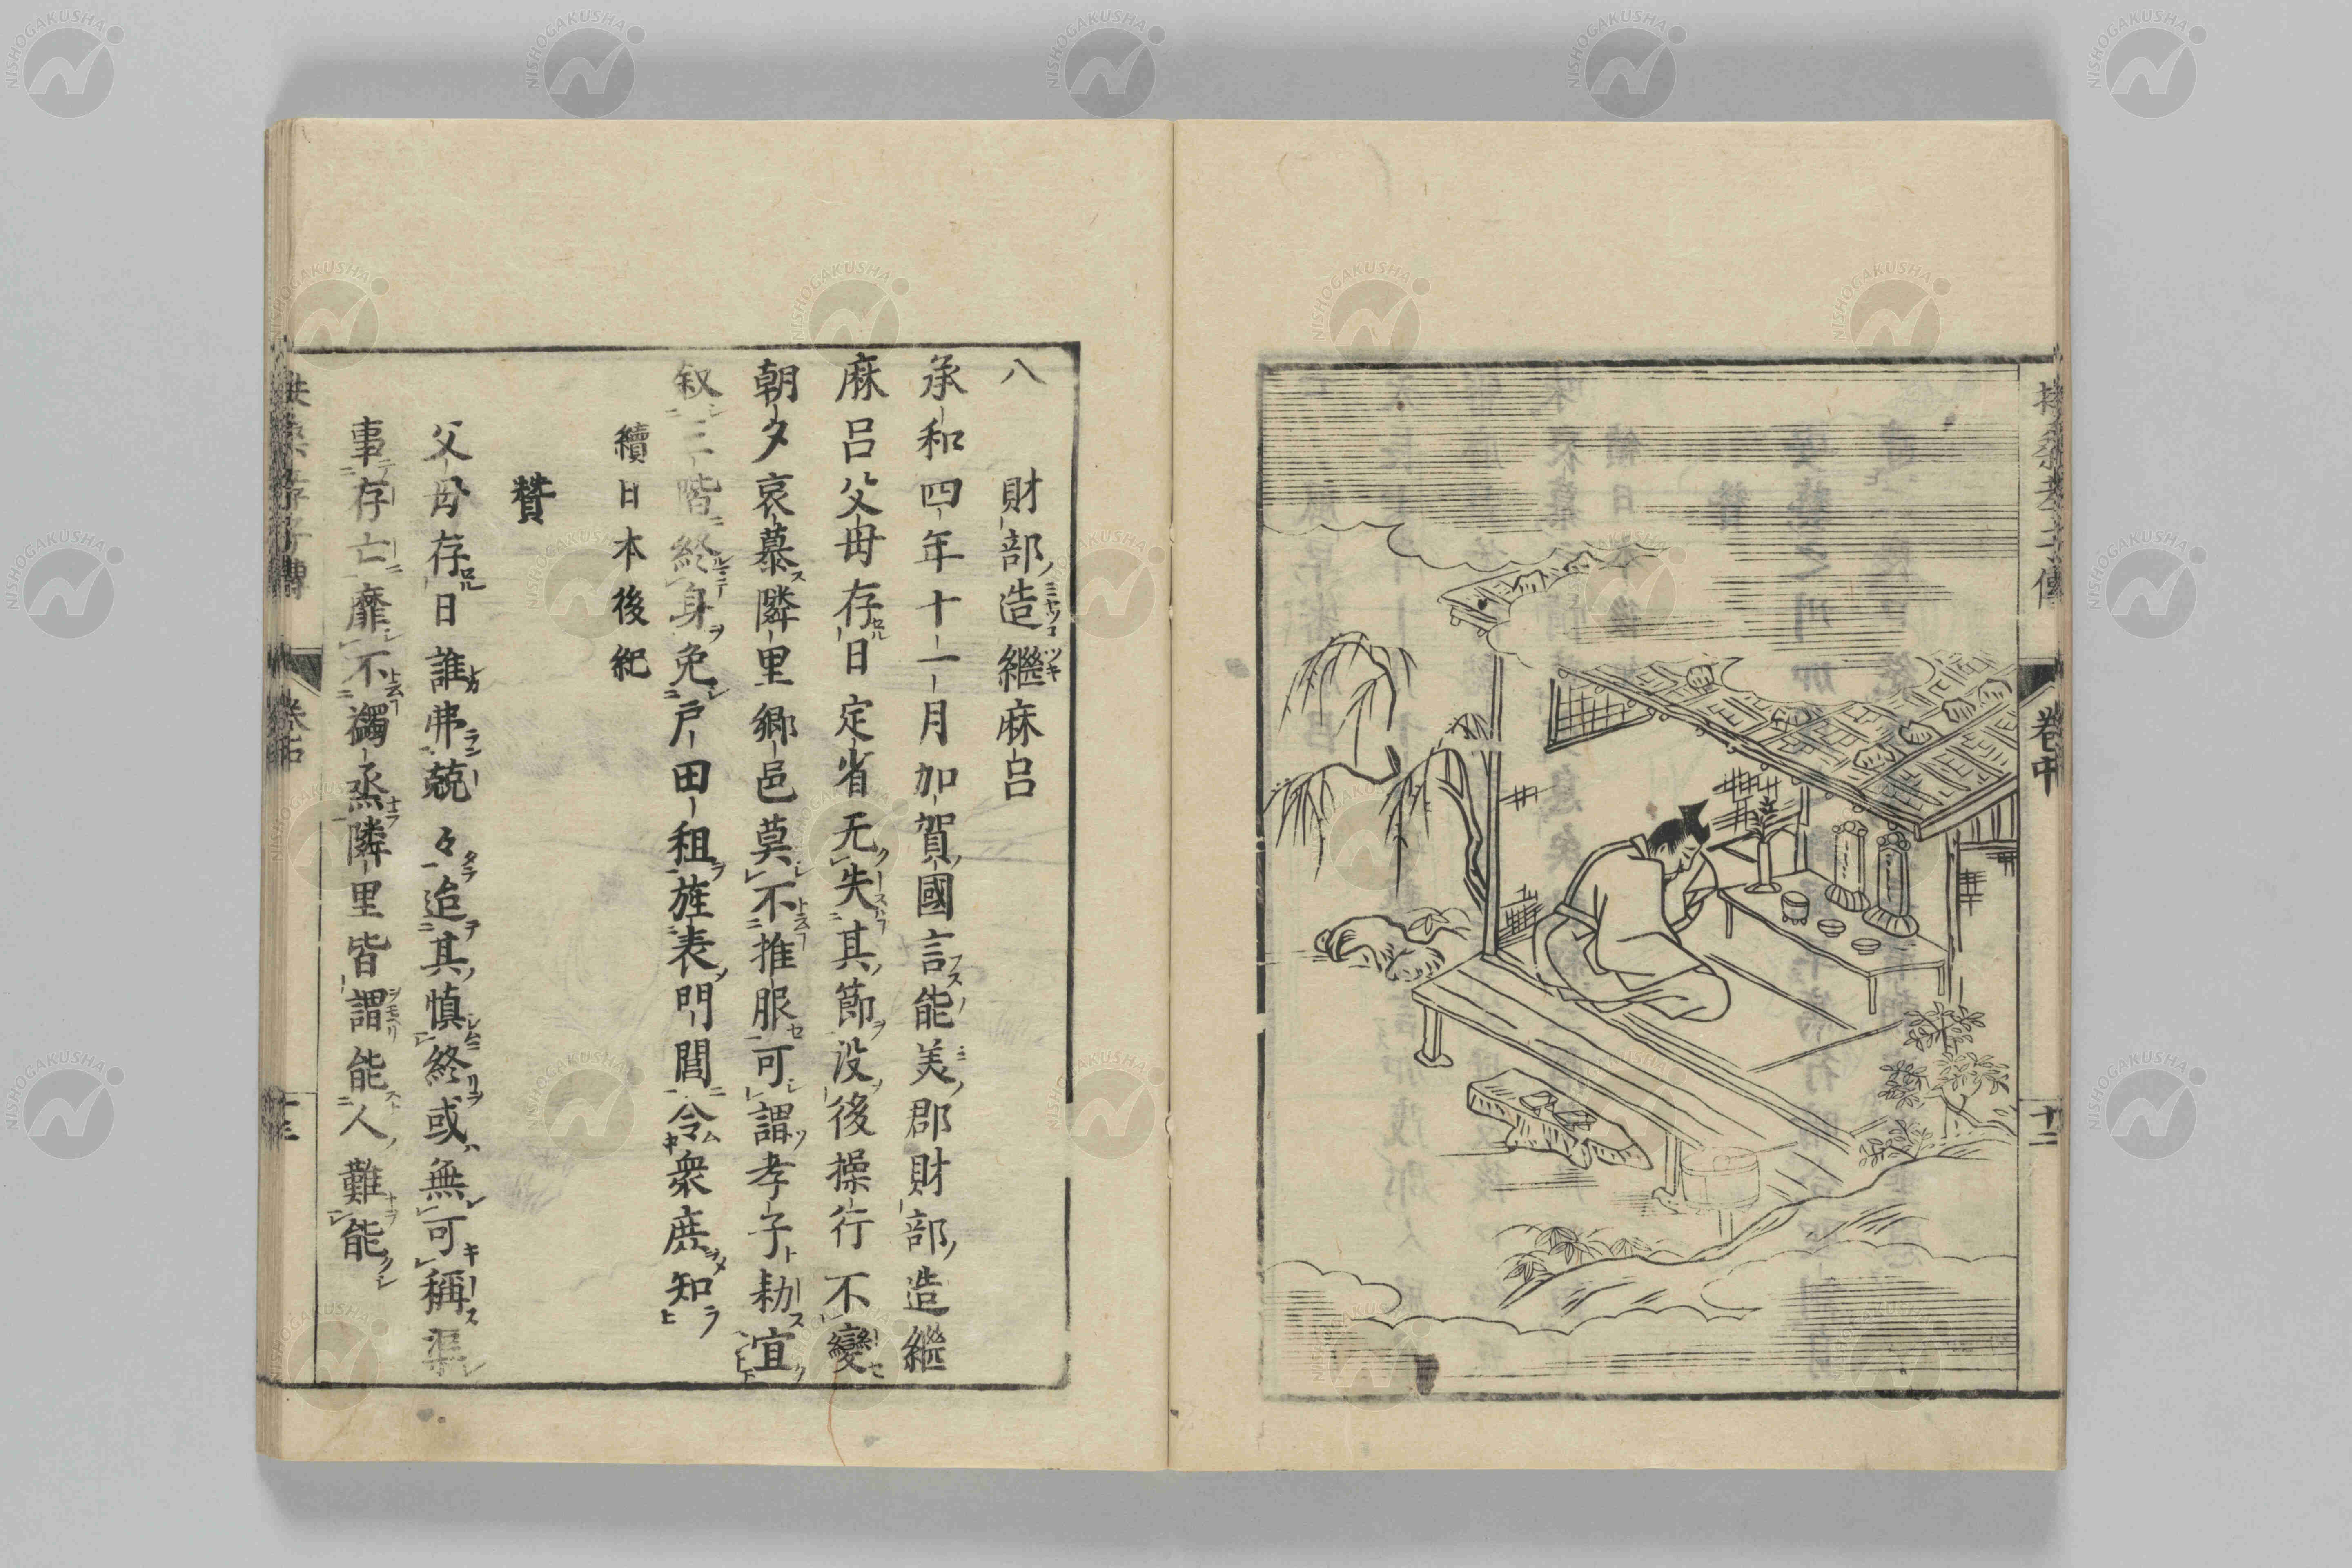 扶桑孝子傳
卷中
十二
八　財部造繼麻呂
承和四年十一月加賀國言能美郡財部造繼
麻呂父母存日定省无失其節沒後操行不變
朝夕哀慕隣里鄉邑莫不推服可謂孝子勑宜
叙三階終身免戸田租旌表門閭令衆庶知
續日本後紀
贊
父母存日誰弗兢々追其慎終或無可稱渠
事存亡靡不蠲烝隣里皆謂能人難能
NISHOGAKUSHA